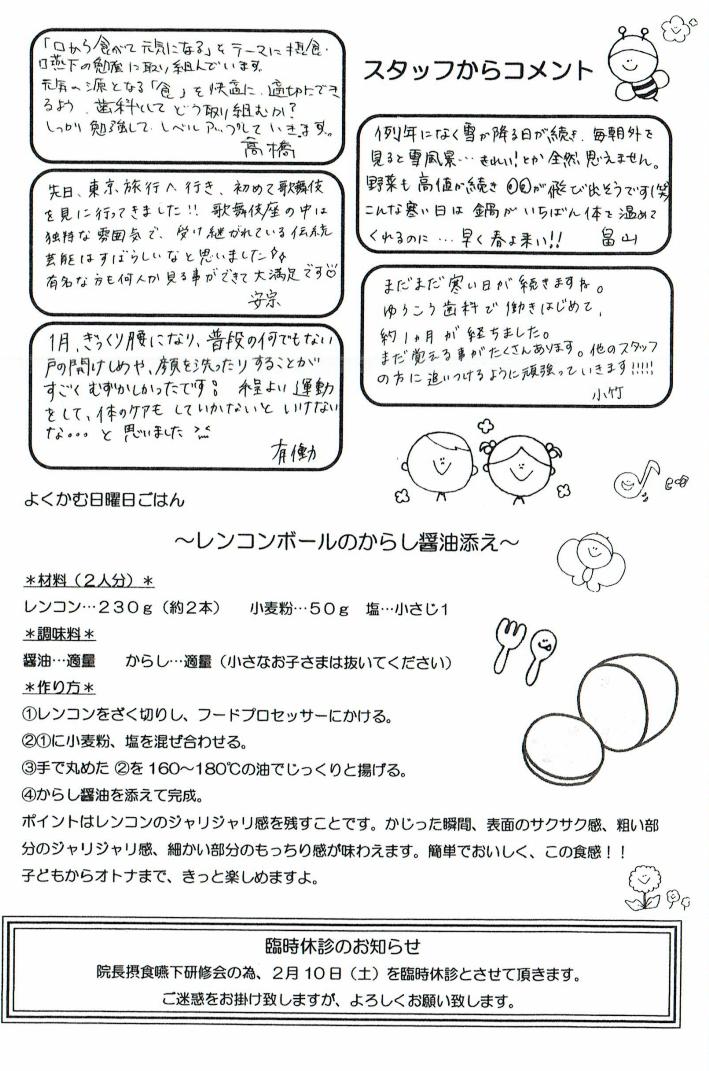 スタッフからコメント
「口から食べて元気になる」をテーマに摂食・
嚥下の勉強に取り組んでいます。
元気の源となる「食」を快適に、適切にでき
るよう、歯科としてどう取り組むか?
しっかり勉強して、レベルアップしていきます。
高橋
先日、東京旅行へ行き、初めて歌舞伎
を見に行ってきました!! 歌舞伎座の中は
独特な雰囲気で、受け継がれている伝統
芸能はすばらしいなと思いました
有名な方も何人か見る事ができて大満足です
安宗
1月、ぎっくり腰になり、普段の何でもない
戸の開けしめや、顔を洗ったりすることが
すごくむずかしかったです 程よい運動
をして、体のケアもしていかないといけない
な。。。と思いました
有働
例年になく雪が降る日が続き、毎朝外を
見ると雪風景…きれい!とか全然思えません。
野菜も高値が続き が飛び出そうです(笑)
こんな寒い日は鍋がいちばん体を温めて
くれるのに…早く春よ来い!! 畠山
まだまだ寒い日が続きますね。
ゆうこう歯科で働きはじめて、
約1ヵ月が経ちました。
まだ覚える事がたくさんあります。他のスタッフ
の方に追いつけるように頑張っていきます!!!!!
小竹
よくかむ日曜日ごはん
~レンコンボールのからし醤油添え~
*材料(2人分)*
レンコン…230g(約2本) 小麦粉…50g 塩…小さじ1
*調味料*
醤油…適量 からし…適量(小さなお子さまは抜いてください)
*作り方*
①レンコンをざく切りし、フードプロセッサーにかける。
②①に小麦粉、塩を混ぜ合わせる。
③手で丸めた ②を 160~180℃の油でじっくりと揚げる。
④からし醤油を添えて完成。
ポイントはレンコンのジャリジャリ感を残すことです。かじった瞬間、表面のサクサク感、粗い部
分のジャリジャリ感、細かい部分のもっちり感が味わえます。簡単でおいしく、この食感!!
子どもからオトナまで、きっと楽しめますよ。
臨時休診のお知らせ
院長摂食嚥下研修会の為、2月10日(土)を臨時休診とさせて頂きます。
ご迷惑をお掛け致しますが、よろしくお願い致します。